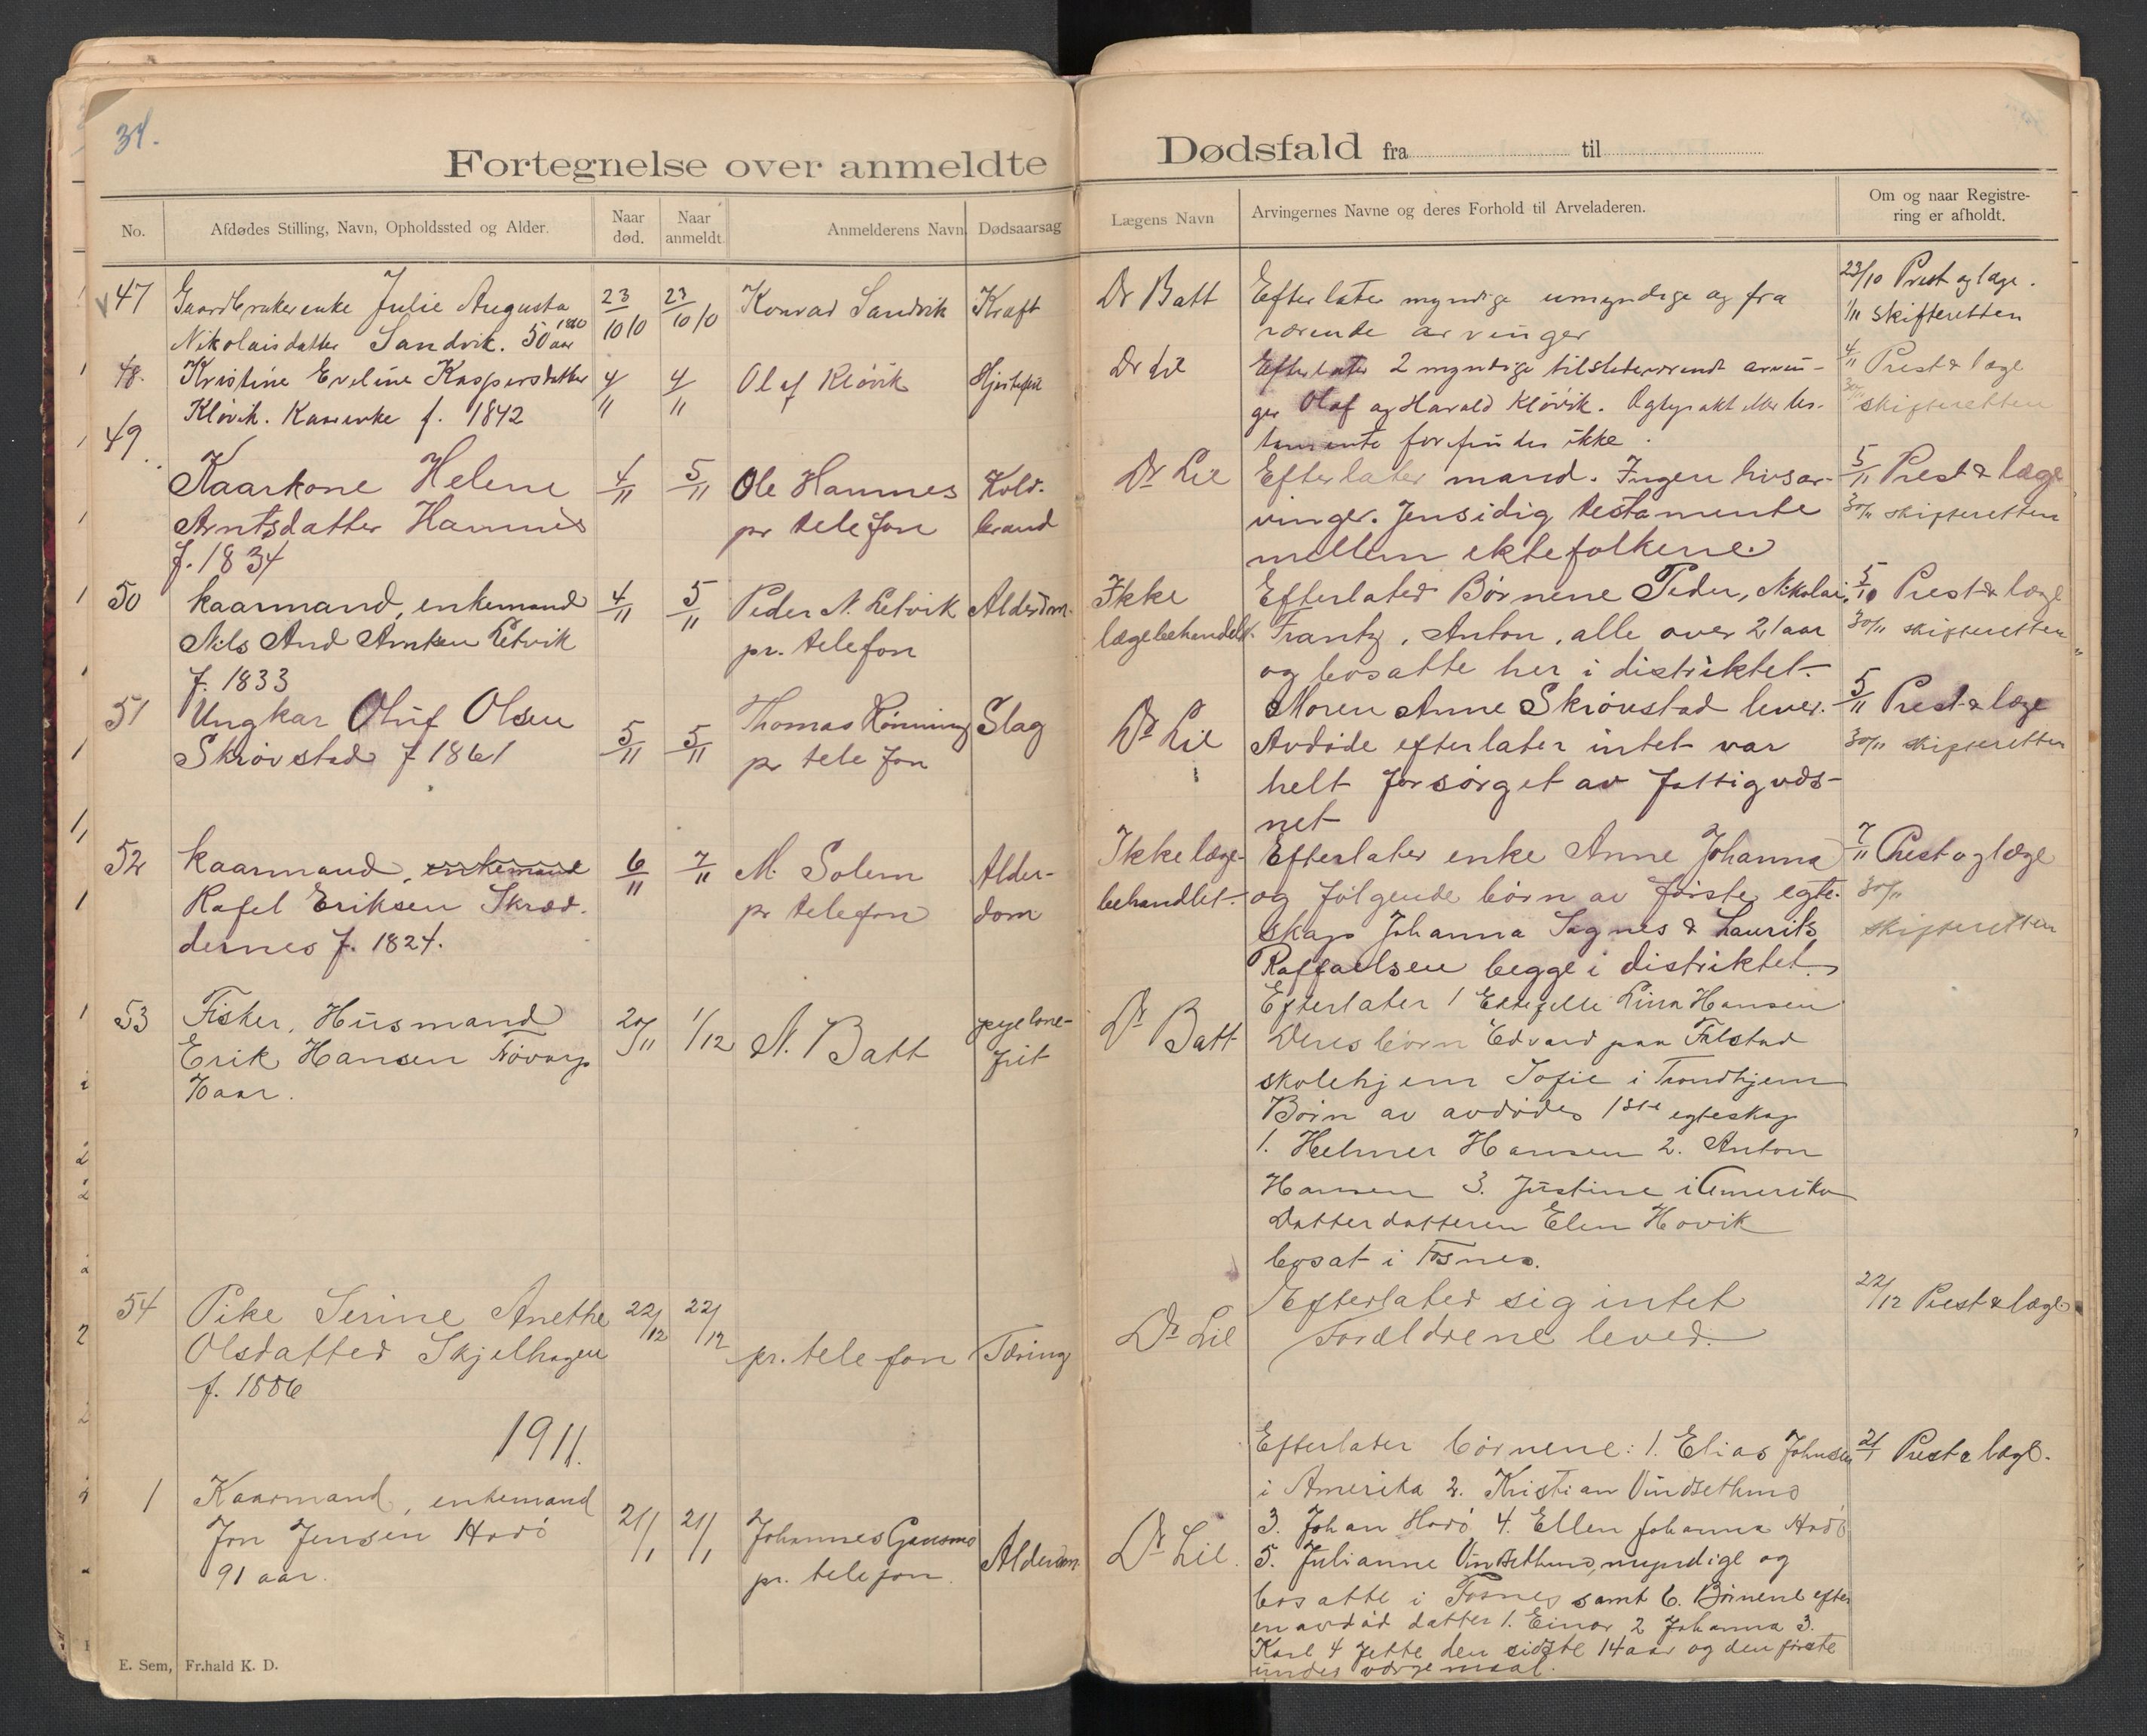 34.
Fortegnelse over anmeldte
No.
Afdødes Stilling, Navn, Opholdssted og Alder.
Naar
død.
Naar
anmeldt.
Anmelderens Navn
Dødsaarsag
47
Gaardbrukerenke Julie Augusta
Nikolaisdatter Sandvik. 50 aar
1860
23/10 10
23/10 10
Konrad Sandvik
Kræft
48.
Kristine Eveline Kaspersdatter
Kløvik. Kaarenke f. 1842
4/11
4/11
Olaf Kløvik
Hjertefeil
49.
Kaarkone Helene
Arntsdatter Hamnes
f. 1834
4/11
5/11
Ole Hamnes
pr telefon
Kold-
brand
50
kaarmand, enkemand
Nils And Arntsen Letvik
f. 1833
4/11
5/11
Peder N. Letvik
pr. telefon
Alderdom.
51
Ungkar Oluf Olsen
Skrøvstad f 1861
5/11
5/11
Thomas Rønning
pr telefon
Slag
52
kaarmand, enkemand
Rafel Eriksen Skræd-
dernes f. 1824.
6/11
7/11
M. Solem
pr telefon
Alder-
dom
53
Fisker, Husmand
Erik Hansen
aar.
20/11
1/12
N. Batt
pyelone-
frit
54
Pike Serine Anethe
Olsdatter Skjelhagen
f. 1886
22/12
22/12
pr. telefon
Tæring
1911.
1
Kaarmand, enkemand
Jon Jensen Hodø
91 aar.
21/1
21/1
Johannes Gansmo
pr. telefon.
Alderdom
E. Sem, Fr.hald K. D.
Dødsfald fra til
Lægens Navn
Arvingernes Navne og deres Forhold til Arveladeren.
Om og naar Registre-
ring er afholdt.
Dr Batt
Efterlater myndige umyndige og fra
værende arvinger
23/10 Prest og læge.
1/11 skifteretten
Dr Lil
Efterlater 2 myndige tilstedeværende arvin-
ger Olaf og Harald Kløvik. Ogtepakt eller tes-
tamente forefindes ikke.
4/11 Prest & læge
30/11 skifteretten
Dr Lil
Efterlater mand. Ingen livsar-
vinger. Jensidig testamente
mellem ektefolkene.
5/11 Prest & læge
30/11 skifteretten
Ikke
lægebehandelt.
Efterlater Børnene Peder, Nikolai,
Frantz, Anton, alle over 21 aar
og bosatte her i distriktet.
5/10 Prest & læge
30/11 skifteretten
Dr Lil
Moren Anne Skrøvstad lever.
Avdøde efterlater intet var
helt forsørget av fattigvæs-
net
5/11 Prest & læge
30/11 skifteretten
Ikke læge-
behandlet.
Efterlater enke Anne Johanna
og følgende børn av første egte-
skap Johanna Sagnes & Laurits
Raffaelsen begge i distriktet.
7/11 Prest og læge
30/11
skifteretten
Dr Batt
Efterlater 1 Ektefelle Lina Hansen
Deres børn Edvard paa Falstad
skolehjem Sofie i Trondhjem
Børn av avdødes 1ste egteskap
1. Helmer Hansen 2. Anton
Hansen 3. Justine i Amerika
Datterdatteren Elen Hovik
bosat i Fosnes.
Dr Lil
Efterlater sig intet
Forældrene lever.
22/12 Prest & læge
Dr Lil.
Efterlater børnene: 1. Elias Johnsen
i Amerika 2. Kristian Vindsethmo
3. Johan Hodø 4. Ellen Johanna Hodø
5. Julianne Vindsethmo, myndige og
bosatte i Fosnes samt 6. Børnene efter
en avdød datter 1. Einar 2 Johanna 3.
Karl 4 Jette den sidste 14 aar og den første
under værgemaal.
21/1 Prest & læge.